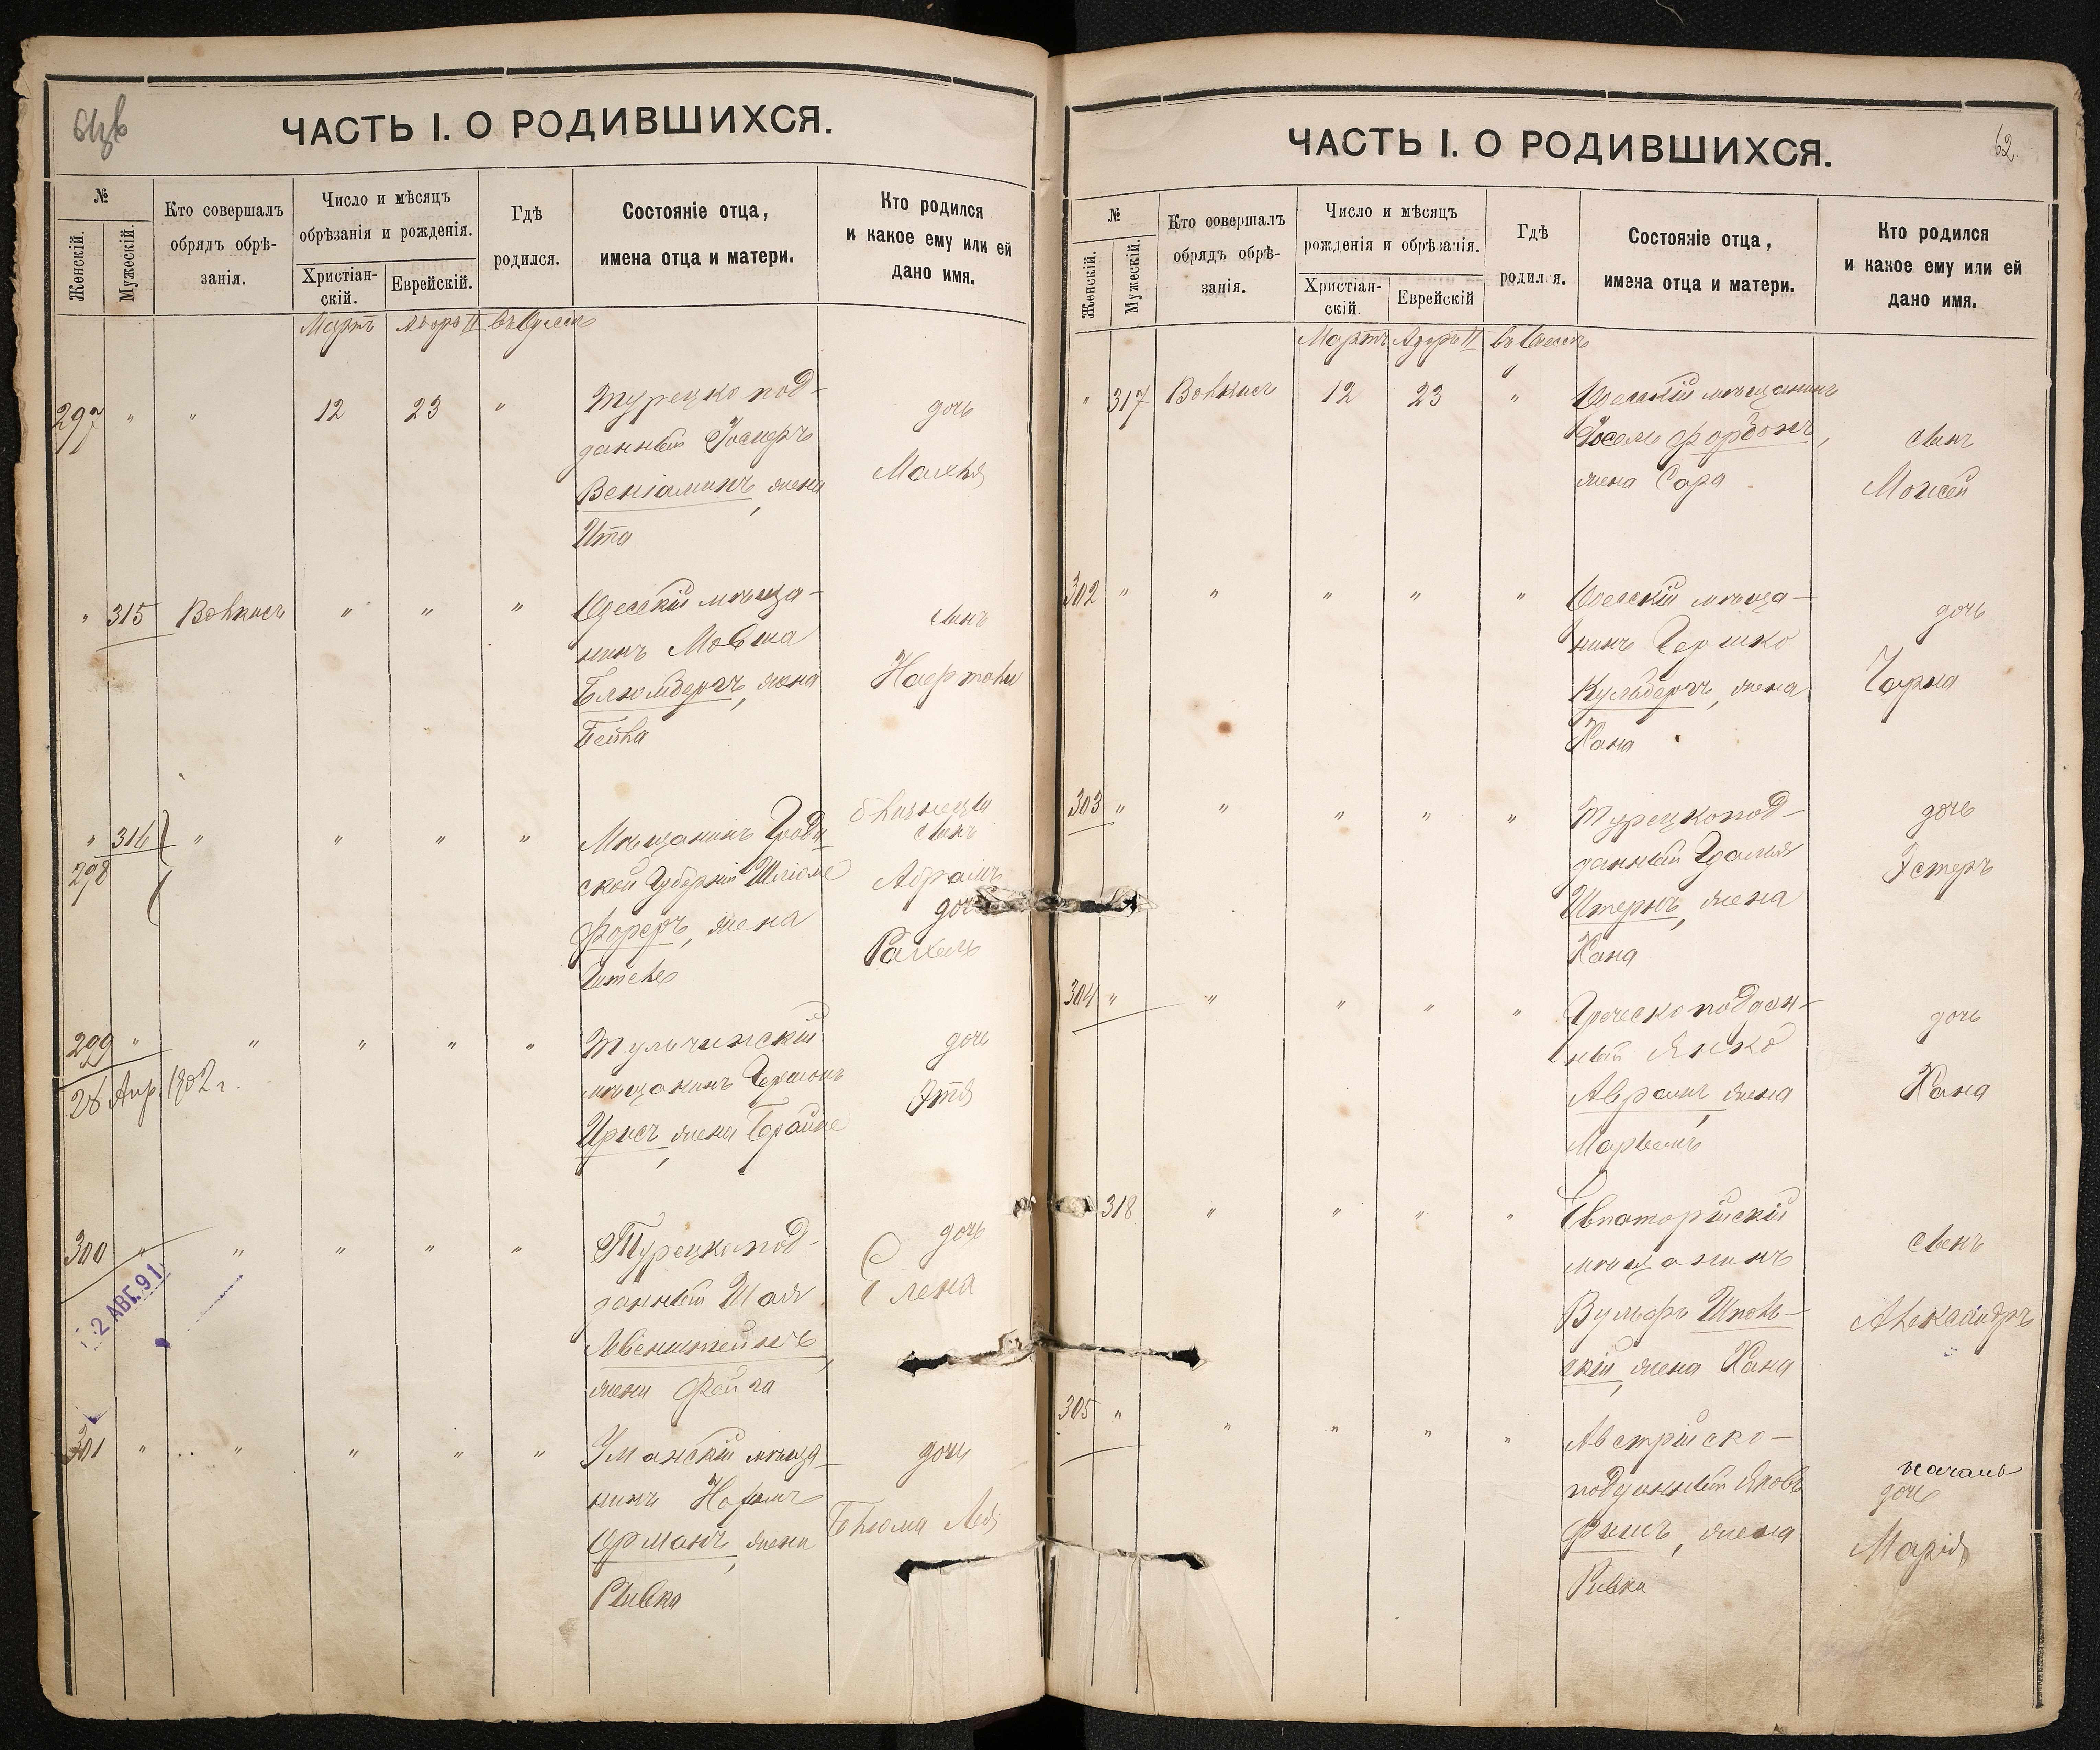 ЧАСТЬ I. О РОДИВШИХСЯ.
№
Женскій.
Мужескій.
Кто совершалъ
обрядъ обрѣ-
занія.
Число и мѣсяцъ
обрѣзанія и рожденія.
Христіан-
скій.
Еврейскій.
Гдѣ
родился.
Состояніе отца,
имена отца и матери.
Кто родился
и какое ему или ей
дано имя.
Мартъ Адоръ II въ Одессѣ
297 " " 12 23 " Турецко под-
данный
Веніаминъ, жена
Ита
дочь
" 315 " " " Одесскій мѣща-
нинъ Мовша
Блюмбергъ, жена
Бейла
сынъ
" 316 " " " "
298
Мѣщанинъ
ской Губерніи
Фореръ, жена
близнецы
сынъ
Абрамъ
дочь
Рахель
299 " " " " " Тульчинскій
мѣщанинъ Гершонъ
жена
дочь
28 Апр. 1902 г.
300 " " " " " Турецкопод-
данный Шая
Левенштейнъ,
жена Фейга
дочь
Елена
2 АВГ. 91
301 " " " " " Уманскій мѣща-
нинъ
Ерманъ, жена
Ривка
дочь
Блюма Лея
ЧАСТЬ I. О РОДИВШИХСЯ.
62.
№
Женскій.
Мужескій.
Кто совершалъ
обрядъ обрѣ-
занія.
Число и мѣсяцъ
рожденія и обрѣзанія.
Христіан-
скій.
Еврейскій
Гдѣ
родился.
Состояніе отца,
имена отца и матери.
Кто родился
и какое ему или ей
дано имя.
Мартъ Адоръ II въ Одессѣ
" 317 12 23 " Одесскій мѣщанинъ
жена Сара
сынъ
Моисей
302 " " " " " Одесскій мѣща-
нинъ Гершко
Кульбергъ, жена
Хана
дочь
Чарна
303 " " " " " Турецкопод-
данный
Штернъ, жена
Хана
дочь
Эстеръ
304 " " " " " Греческоподдан-
ный Янко
Аврамъ, жена
дочь
Хана
318 " " " " Евпаторійскій
мѣщанинъ
Вульфъ Шполь-
скій, жена Хана
сынъ
Александръ
305 " " " " " Австрійско-
подданный Яковъ
жена
Ривка
дочь
Марія